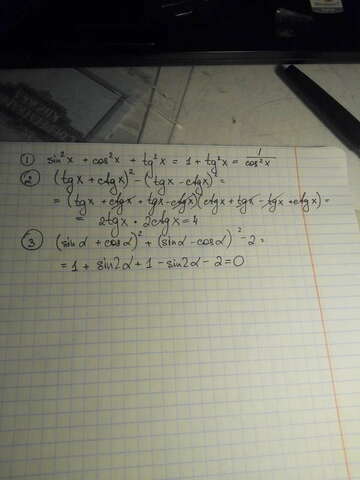 ① sin²x + cos²x + tg²x = 1 + tg²x = 1/cos²x
② (tgx + ctgx)² - (tgx - ctgx)² =
= (tgx + ctgx + tgx - ctgx)(ctgx + tgx - tgx + ctgx) =
= 2tgx • 2ctgx = 4
③ (sinα + cosα)² + (sinα - cosα)² - 2 =
= 1 + sin2α + 1 - sin2α - 2 = 0